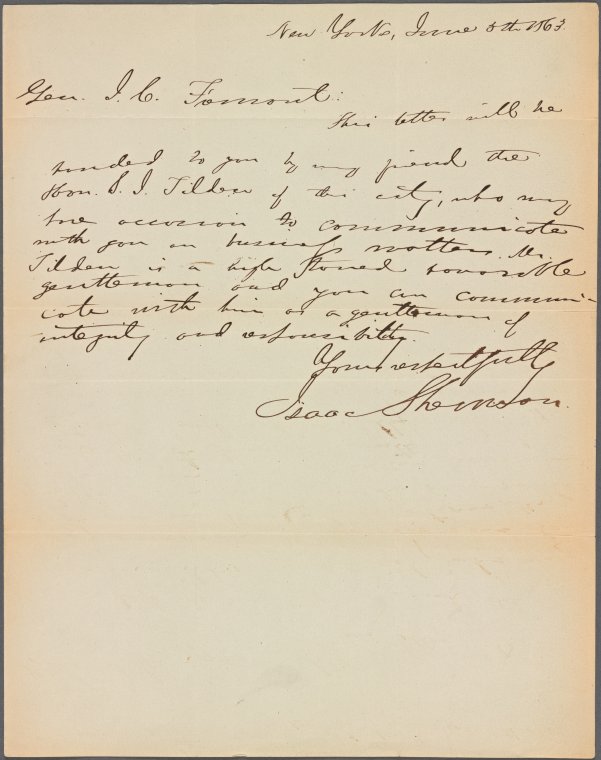 New York, June 5th 1863.
Gen. J. C. Fremont:
This letter will be
handed to you by my friend the
Hon. S. J. Tilden of this city, who may
have occasion to communicate
with you on business matters. Mr.
Tilden is a high toned honorable
gentleman and you can communi-
cate with him as a gentleman of
integrity and responsibility.
Yours respectfully
Isaac Sherman.